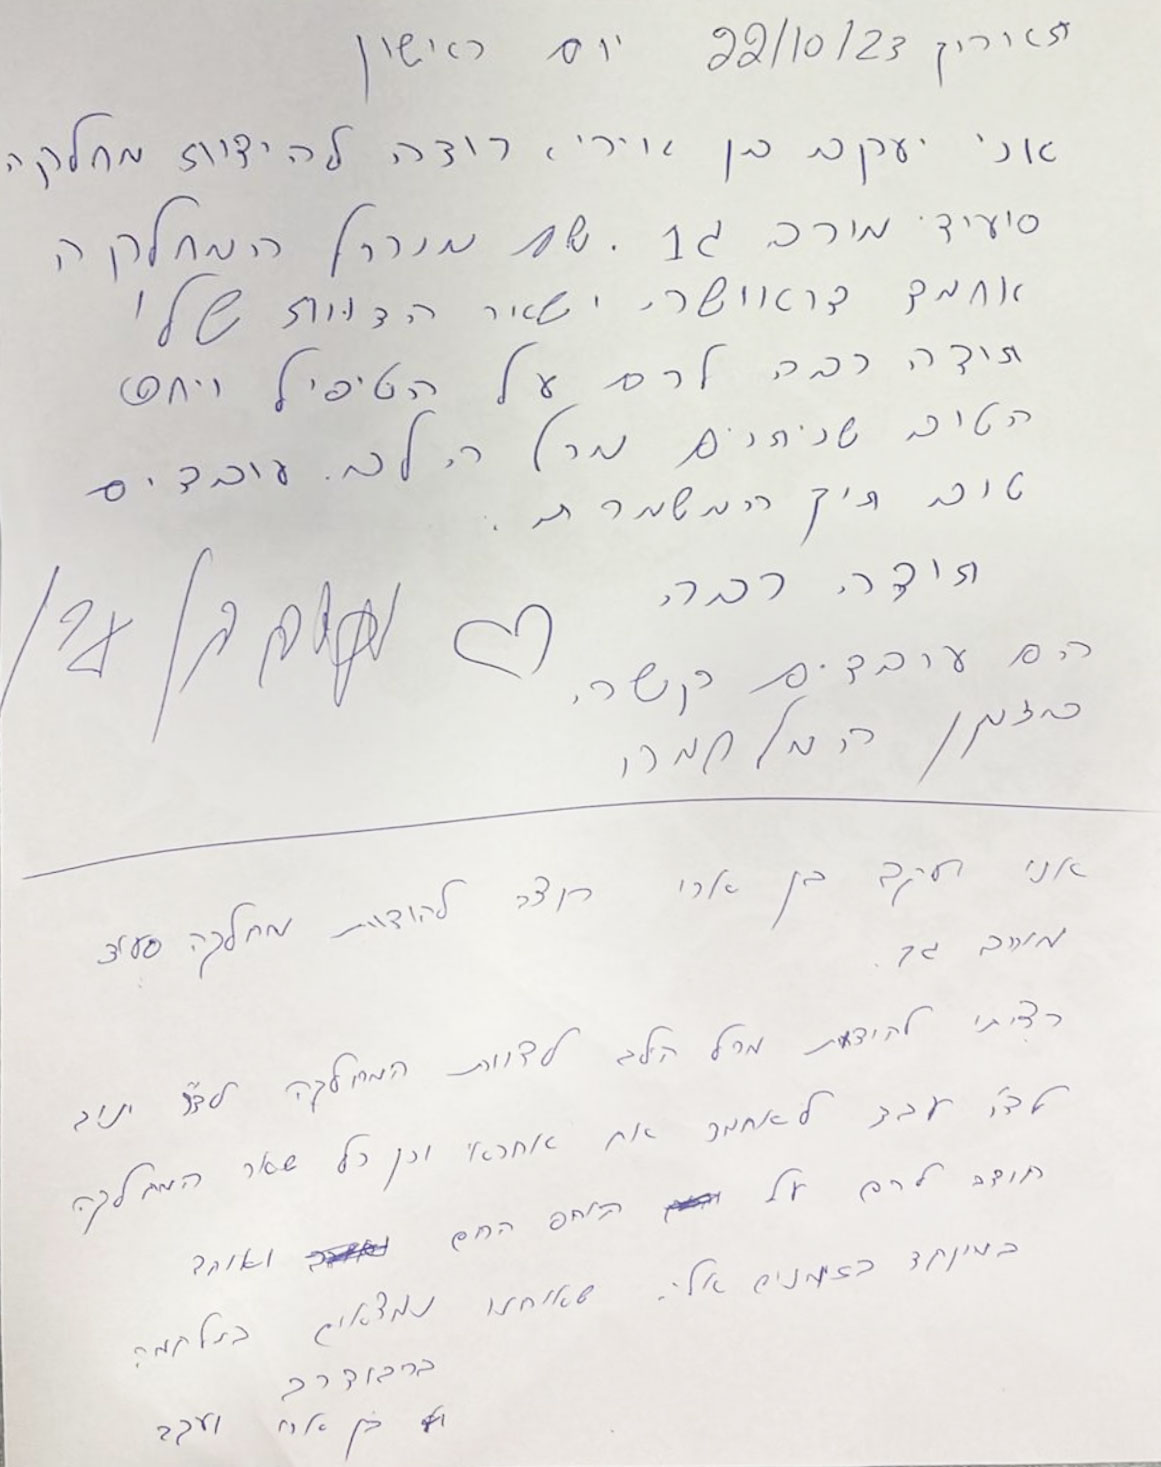 תאריך 22/10/23 יום ראישון
אני יעקב בן אירי רוצה להידות מחלקה
סיעיד מורכב ג1. שם מנהל המחלקה
אחמד דראוושה. ישאיר הצוות שלי
תודה רבה להם על הטיפיל ויחס
הטוב שניתנים מכל הלב. עובדים
טוב תיק המשמרת.
תודה רבה
הם עובדים קשה.
בזמן המלקמה
אני יעקב בן ארי רוצה להודות מחלקה סעיד
מורכב ג1.
רציתי להידעת מכל הלב לצוות המחלקה לדר יניב
לאחמד אח אחראי וכן כל שאר המחלקה
תודה להם על היחס החם ואוהב
במיוחד בזמנים אלי. שאנחנו נמצאים במלחמה
בכבוד רב
בן ארי יעקב